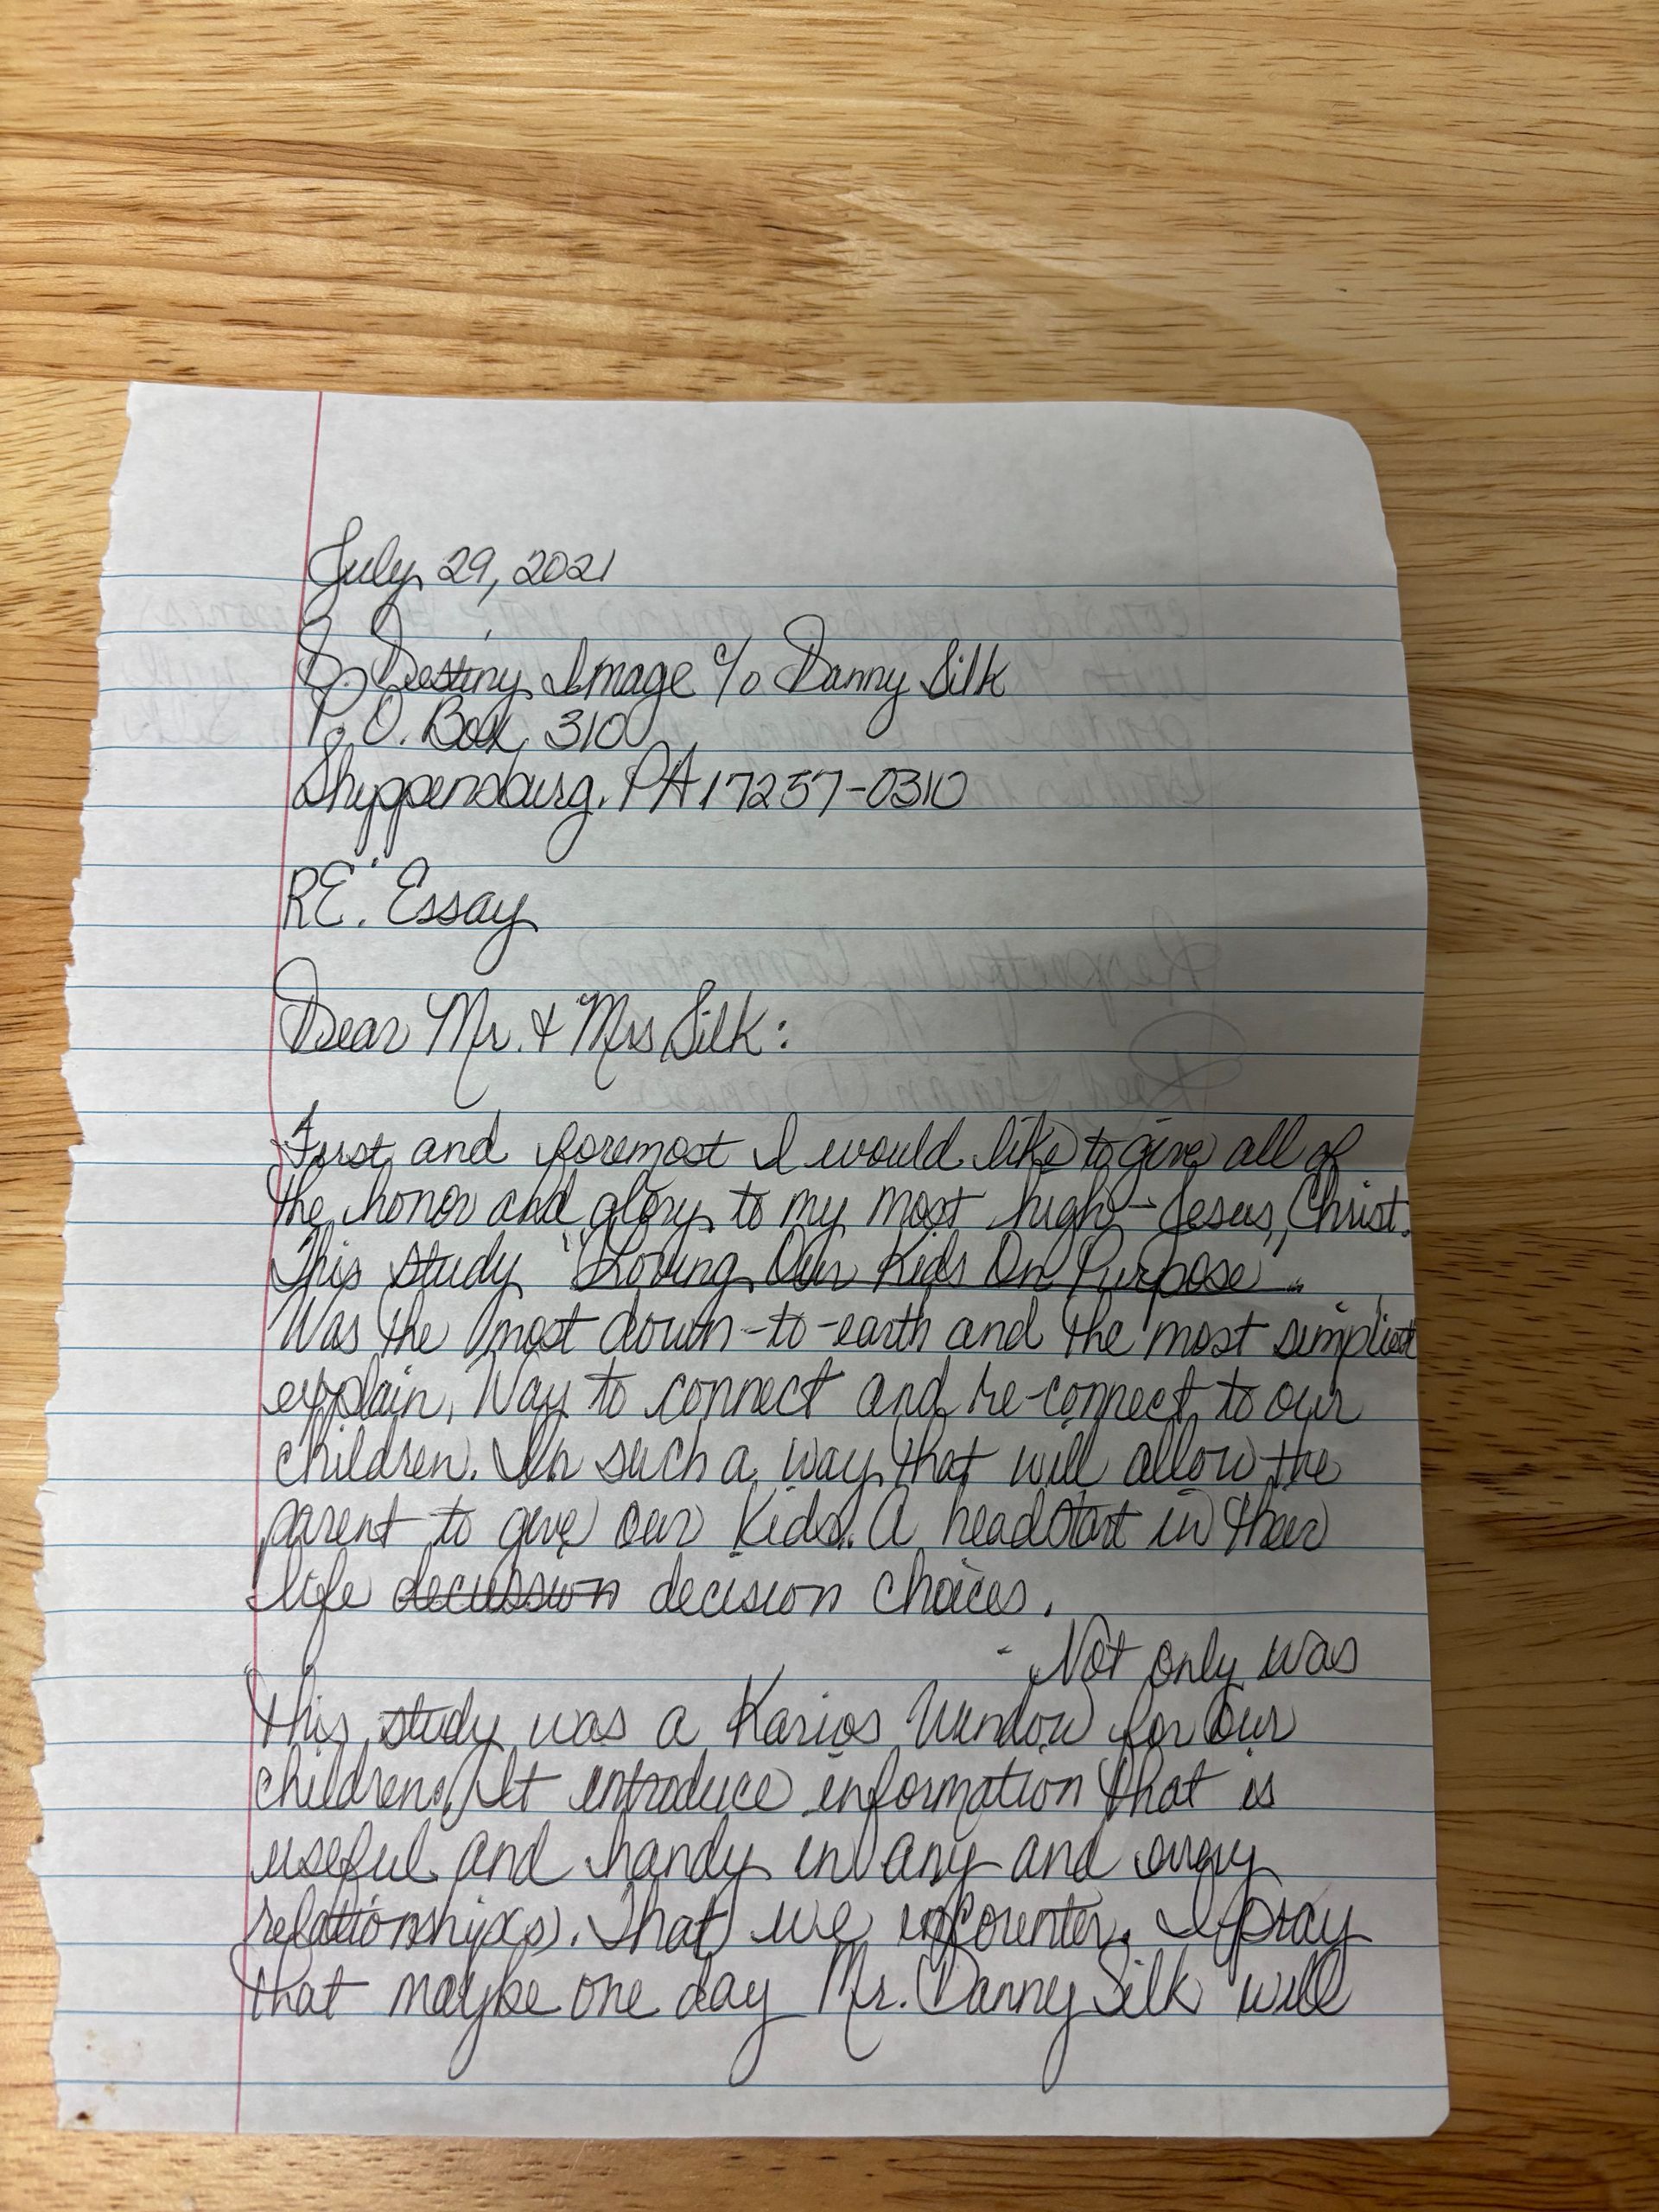 July 29, 2021
Destiny Image c/o Danny Silk
P.O. Box 310
Shippensburg, PA 17257-0310
RE: Essay
Dear Mr. & Mrs Silk:
First and foremost I would like to give all of
the honor and glory to my most high - Jesus, Christ.
This study "Loving Our Kids On Purpose".
Was the most down-to-earth and the most simpliest
explain, Way to connect and re-connect to our
children. In such a way that will allow the
parent to give our Kids. A headstart in their
life decission decision choices.
- Not only was
this study was a Karios Window for our
children, It introduce information that is
useful and handy in any and every
relationship(s). That we encounter. I pray
that maybe one day Mr. Danny Silk will